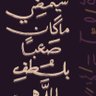 سيمضي
ماكان
صعبا
بلطف
الله